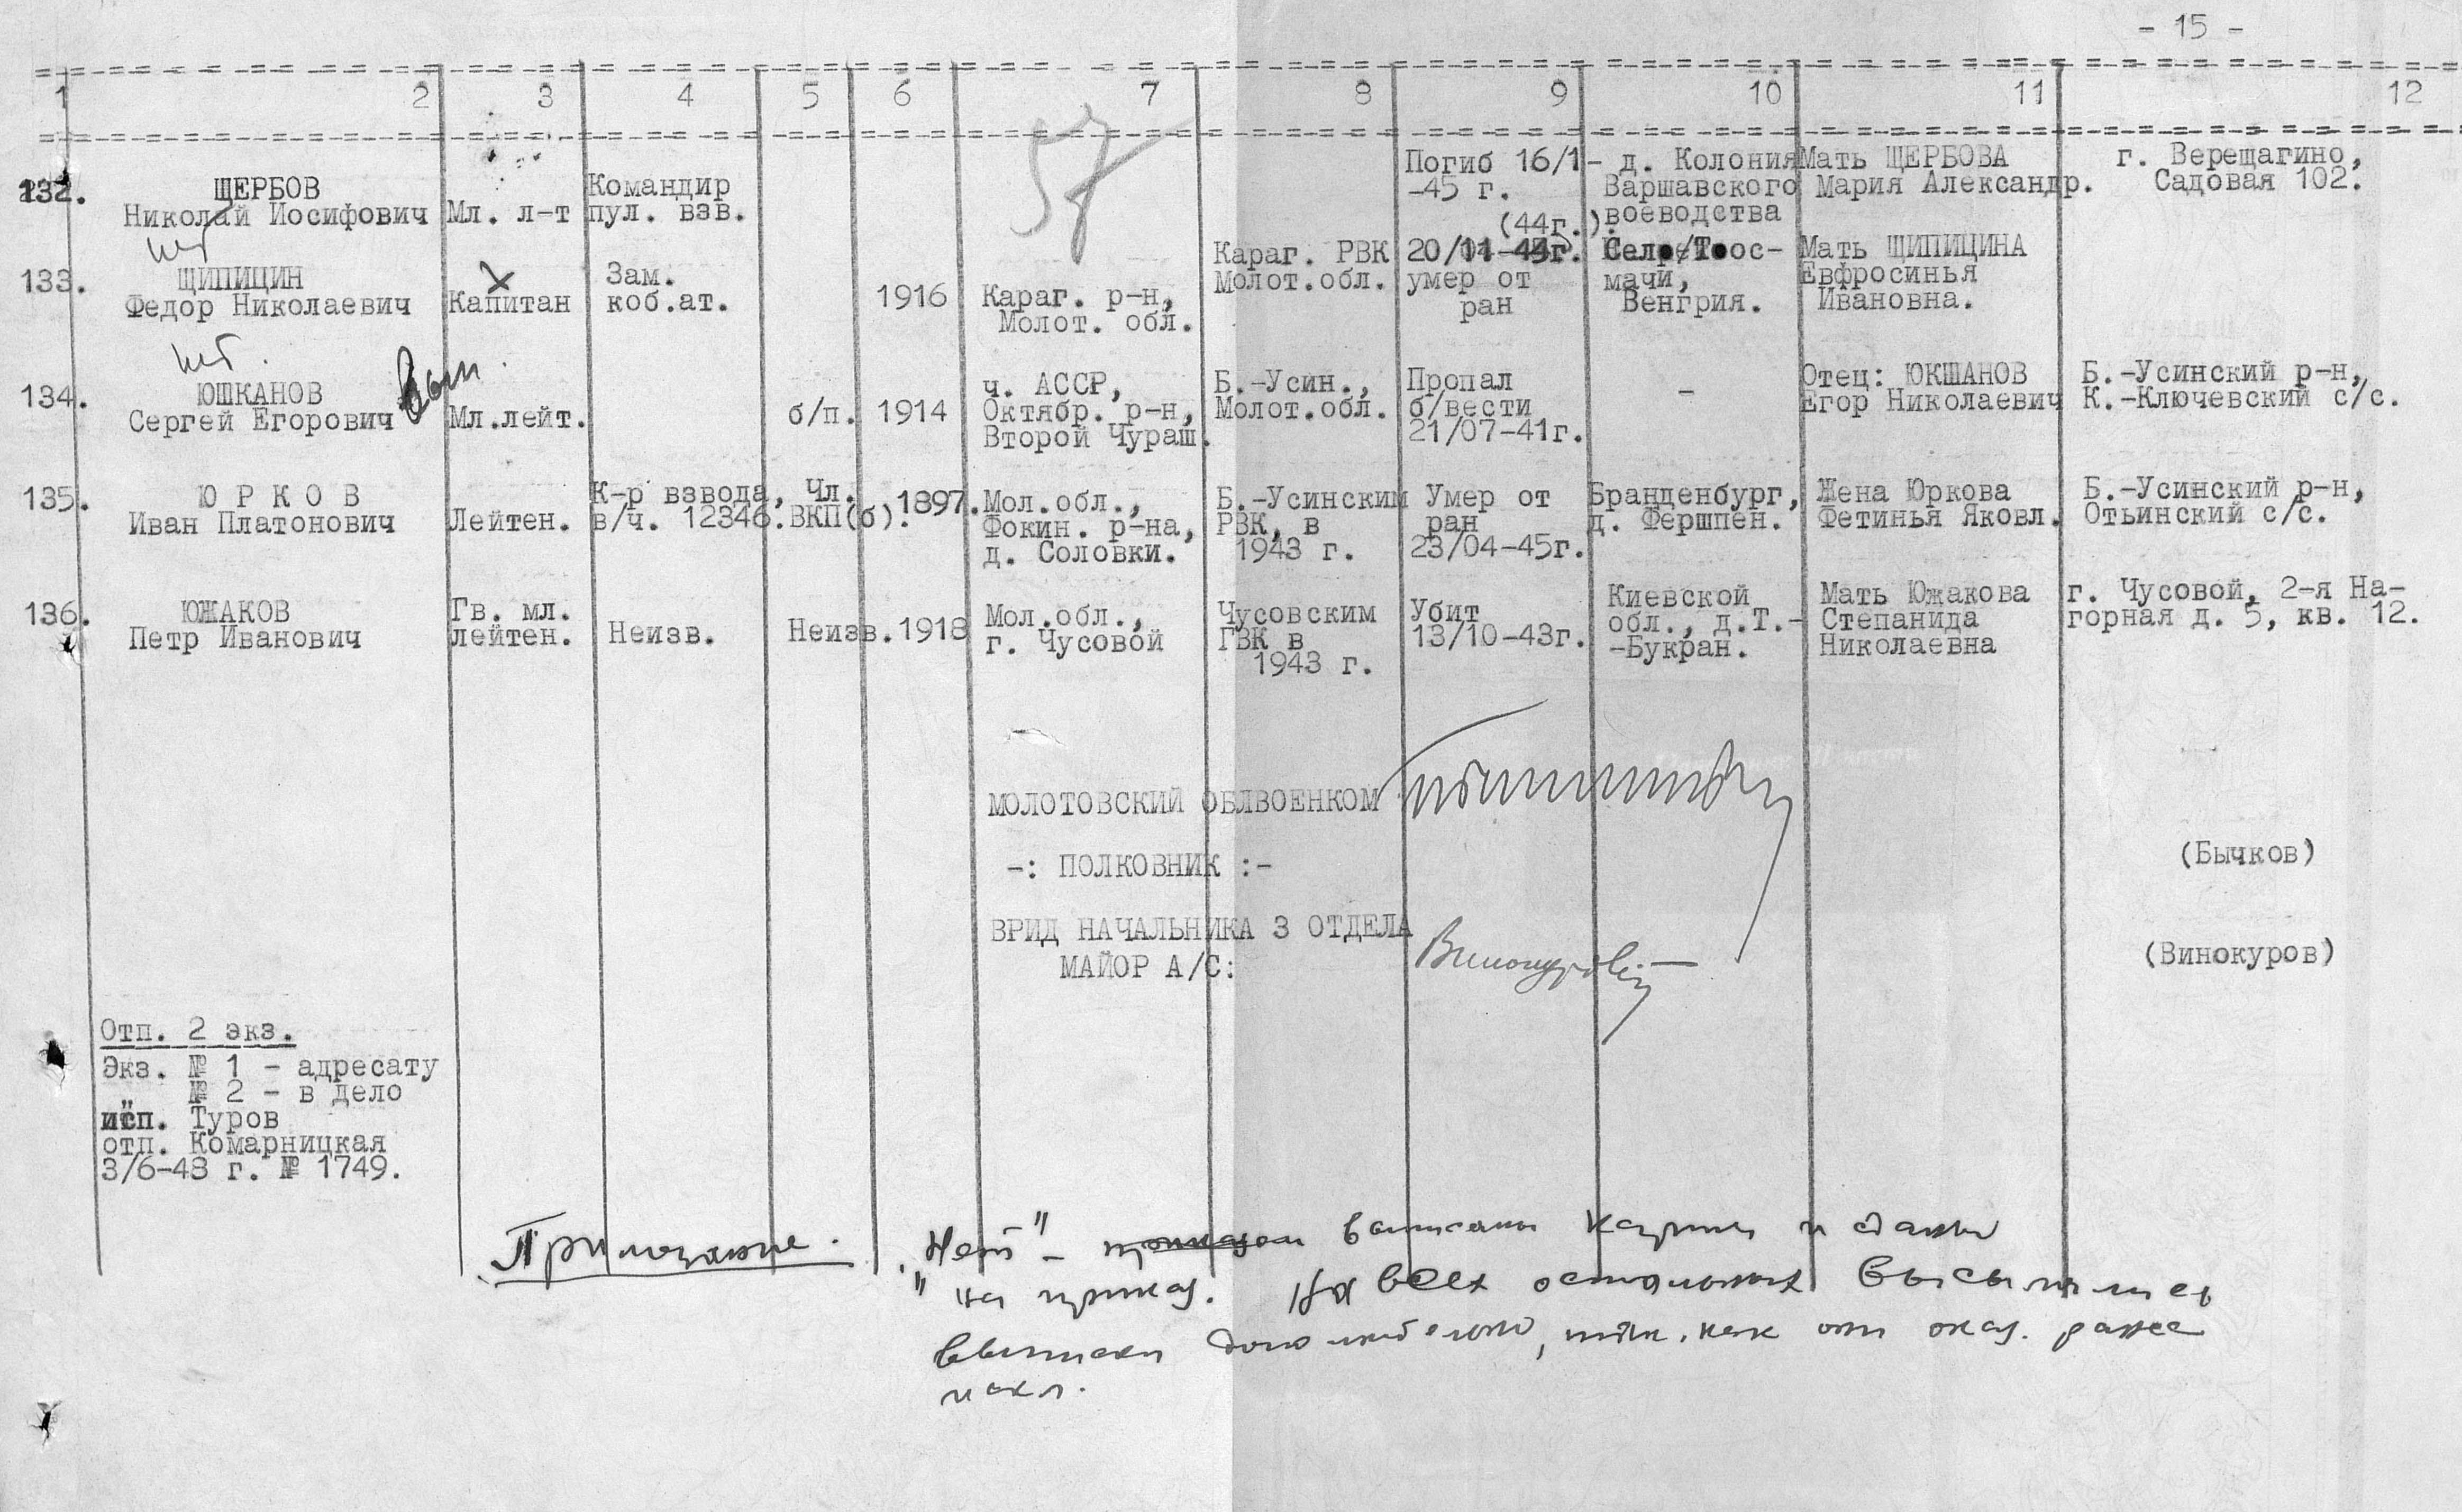 - 15 -
1 2 3 4 5 6 7 8 9 10 11 12
57
Погиб 16/1- д. Колония Мать ЩЕРБОВА г. Верещагино,
132. ЩЕРБОВ Командир -45 г. Варшавского Мария Александр. Садовая 102.
Николай Иосифович Мл. л-т пул. взв. воеводства
(44г.).
нет
Караг. РВК 20/11-44г. Мать ЩИПИЦИНА
133. ЩИПИЦИН Зам. Молот.обл. умер от мачи, Евфросинья
Федор Николаевич Капитан коб.ат. 1916 Караг. р-н, ран Венгрия. Ивановна.
Молот. обл.
нет.
ч. АССР, Б.-Усин., Пропал - Отец: ЮКШАНОВ Б.-Усинский р-н,
134. ЮШКАНОВ Октябр. р-н, Молот.обл. б/вести Егор Николаевич К.-Ключевский с/с.
Сергей Егорович Мл.лейт. б/п. 1914 Второй Чураш. 21/07-41г.
135. Ю Р К О В К-р взвода, Чл. 1897. Мол.обл., Б.-Усинским Умер от Бранденбург, Жена Юркова Б.-Усинский р-н,
Иван Платонович Лейтен. в/ч. 12346. ВКП(б). Фокин. р-на, РВК, в ран д. Фершпен. Фетинья Яковл. Отьинский с/с.
д. Соловки. 1943 г. 23/04-45г.
136. ЮЖАКОВ Гв. мл. Мол.обл., Чусовским Убит Киевской Мать Южакова г. Чусовой, 2-я На-
Петр Иванович лейтен. Неизв. Неизв. 1918 г. Чусовой ГВК в 13/10-43г. обл., д.Т.- Степанида горная д. 5, кв. 12.
1943 г. -Букран. Николаевна
МОЛОТОВСКИЙ ОБЛВОЕНКОМ
-: ПОЛКОВНИК :- (Бычков)
ВРИД НАЧАЛЬНИКА 3 ОТДЕЛА
МАЙОР А/С: Винокуров (Винокуров)
Отп. 2 экз.
Экз. № 1 - адресату
№ 2 - в дело
исп. Туров
отп. Комарницкая
3/6-48 г. № 1749.
Примечание. "Нет" - выписаны карточки и сданы
на приказ. На всех остальных высылались
выписки дополнительно, так как они оказ. ранее
искл.